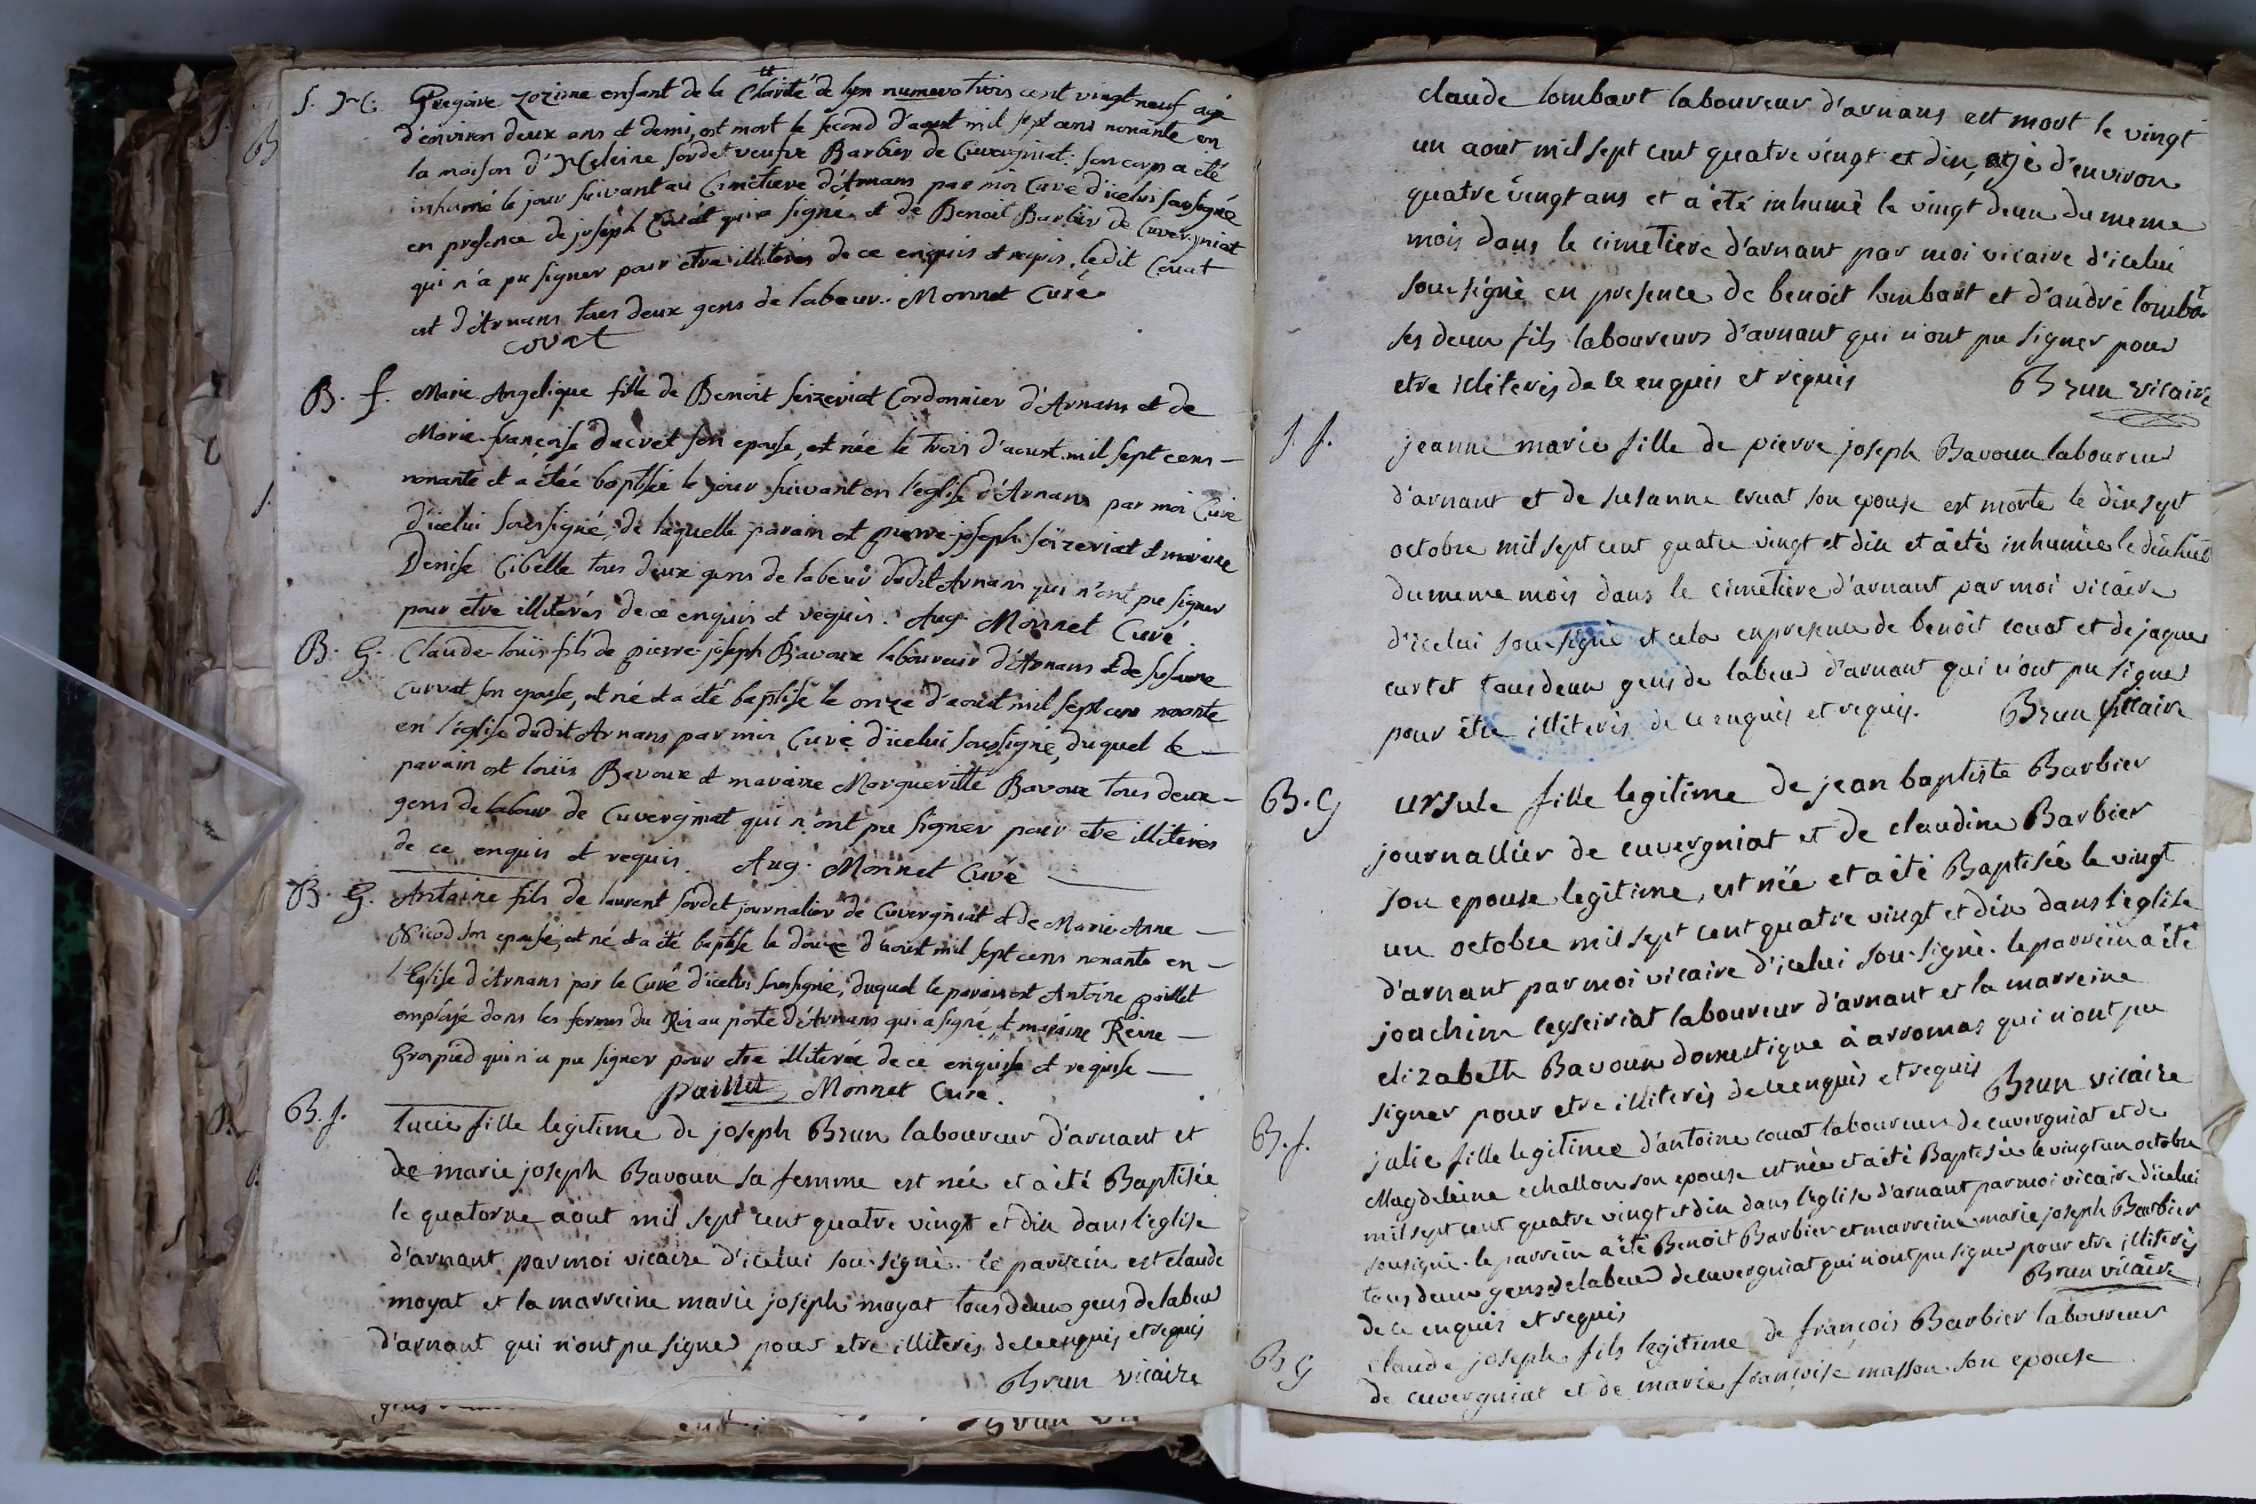 S. M. Gregoire zozime enfant de la Charité de lyon numero trois cent vingt neuf agé
d'environ deux ans et demi, est mort le second d'aoust mil sept cens nonante en
la maison d' Sordet veufve Barbier de Cuvergniat: son corps a été
inhumé le jour suivant au Cimetiere d'Arnans par moi Curé d'icelui soussigné
en presence de joseph Covat qui a signé et de Benoit Barbier de Cuvergniat
qui n'a pu signer pour etre illiterés de ce enquis et requis, ledit Covat
est d'Arnans tous deux gens de labeur. Monnet Curé
covat
B. f. Marie Angelique fille de Benoit Seizeriat Cordonnier d'Arnans et de
Marie-françoise Ducret son epouse, est née le trois d'aoust mil sept cens
nonante et a étée baptisée le jour suivant en l'eglise d'Arnans par moi Curé
d'icelui soussigné, de laquelle parain est pierre-joseph Seizeriat et maraine
Denise Cibelle tous deux gens de labeur dudit Arnans qui n'ont pu signer
pour etre illiterés de ce enquis et requis. Aug. Monnet Curé
B. G. Claude-louis fils de pierre-joseph Bavoux laboureur d'Arnans et de susanne
Curvat son epouse, est né et a été baptisé le onze d'aoust mil sept cens nonante
en l'église dudit Arnans par moi Curé d'icelui soussigné, duquel le
parain est louis Bavoux et maraine Margueritte Bavoux tous deux
gens de labour de Cuvergniat qui n'ont pu signer pour etre illiterés
de ce enquis et requis. Aug. Monnet Curé
B. G. Antoine fils de laurent Sordet journalier de Cuvergniat et de Marie-Anne
Nicod son epouse, est né et a été baptisé le douze d'aoust mil sept cens nonante en
l'Eglise d'Arnans par le Curé d'icelui soussigné, duquel le parain est Antoine paillet
employé dans les fermes du Roi au poste d'Arnans qui a signé, et maraine Reine
Grospied qui n'a pu signer pour etre illiterée de ce enquise et requise
paillet Monnet Curé.
B. f. Lucie fille legitime de joseph Brun laboureur d'arnant et
de marie joseph Bavoux sa femme est née et a été Baptisée
le quatorze aout mil sept cent quatre vingt et dix dans l'eglise
d'arnant par moi vicaire d'icelui sou-signé. le parrein est claude
moyat et la marreine marie joseph moyat tous deux gens de labeur
d'arnant qui n'ont pu signer pour etre illiterés de ce enquis et requis
Brun vicaire
claude lombart laboureur d'arnans est mort le vingt
un aout mil sept cent quatre vingt et dix, agé d'environ
quatre vingt ans et a été inhumé le vingt deux du meme
mois dans le cimetiere d'arnant par moi vicaire d'icelui
sousigné en presence de benoit lombart et d'andré lombart
ses deux fils laboureurs d'arnant qui n'ont pu signer pour
etre illiterés de ce enquis et requis Brun vicaire
S. f. jeanne marie fille de pierre joseph Bavoux laboureur
d'arnant et de susanne cruat son epouse est morte le dix sept
octobre mil sept cent quatre vingt et dix et a été inhumée le dix huit
du meme mois dans le cimetiere d'arnant par moi vicaire
d'icelui sou-signé et cela en presence de benoit couat et de jaque
curtet tous deux gens de labeur d'arnant qui n'ont pu signer
pour être illiterés de ce enquis et requis. Brun vicaire
B. G ursule fille legitime de jean baptiste Barbier
journallier de cuvergniat et de claudine Barbier
son epouse legitime, est née et a été Baptisée le vingt
un octobre mil sept cent quatre vingt et dix dans l'église
d'arnant par moi vicaire d'icelui sou-signé. le parrein a été
joachim ceyseiriat laboureur d'arnant et la marreine
elizabeth Bavoux domestique à arromas qui n'ont pu
signer pour etre illiterés de ce enquis et requis Brun vicaire
B. f. julie fille legitime d'antoine couat laboureur de cuvergniat et de
Magdeleine echallon son epouse est née et a été Baptisée le vingt un octobre
mil sept cent quatre vingt et dix dans l'église d'arnant par moi vicaire d'icelui
sousigné. le parrein a été Benoit Barbier et marreine marie joseph Barbier
tous deux gens de labeur de cuvergniat qui n'ont pu signer pour etre illiterés
de ce enquis et requis Brun vicaire
B G claude joseph fils legitime de françois Barbier laboureur
de cuvergniat et de marie françoise masson son epouse